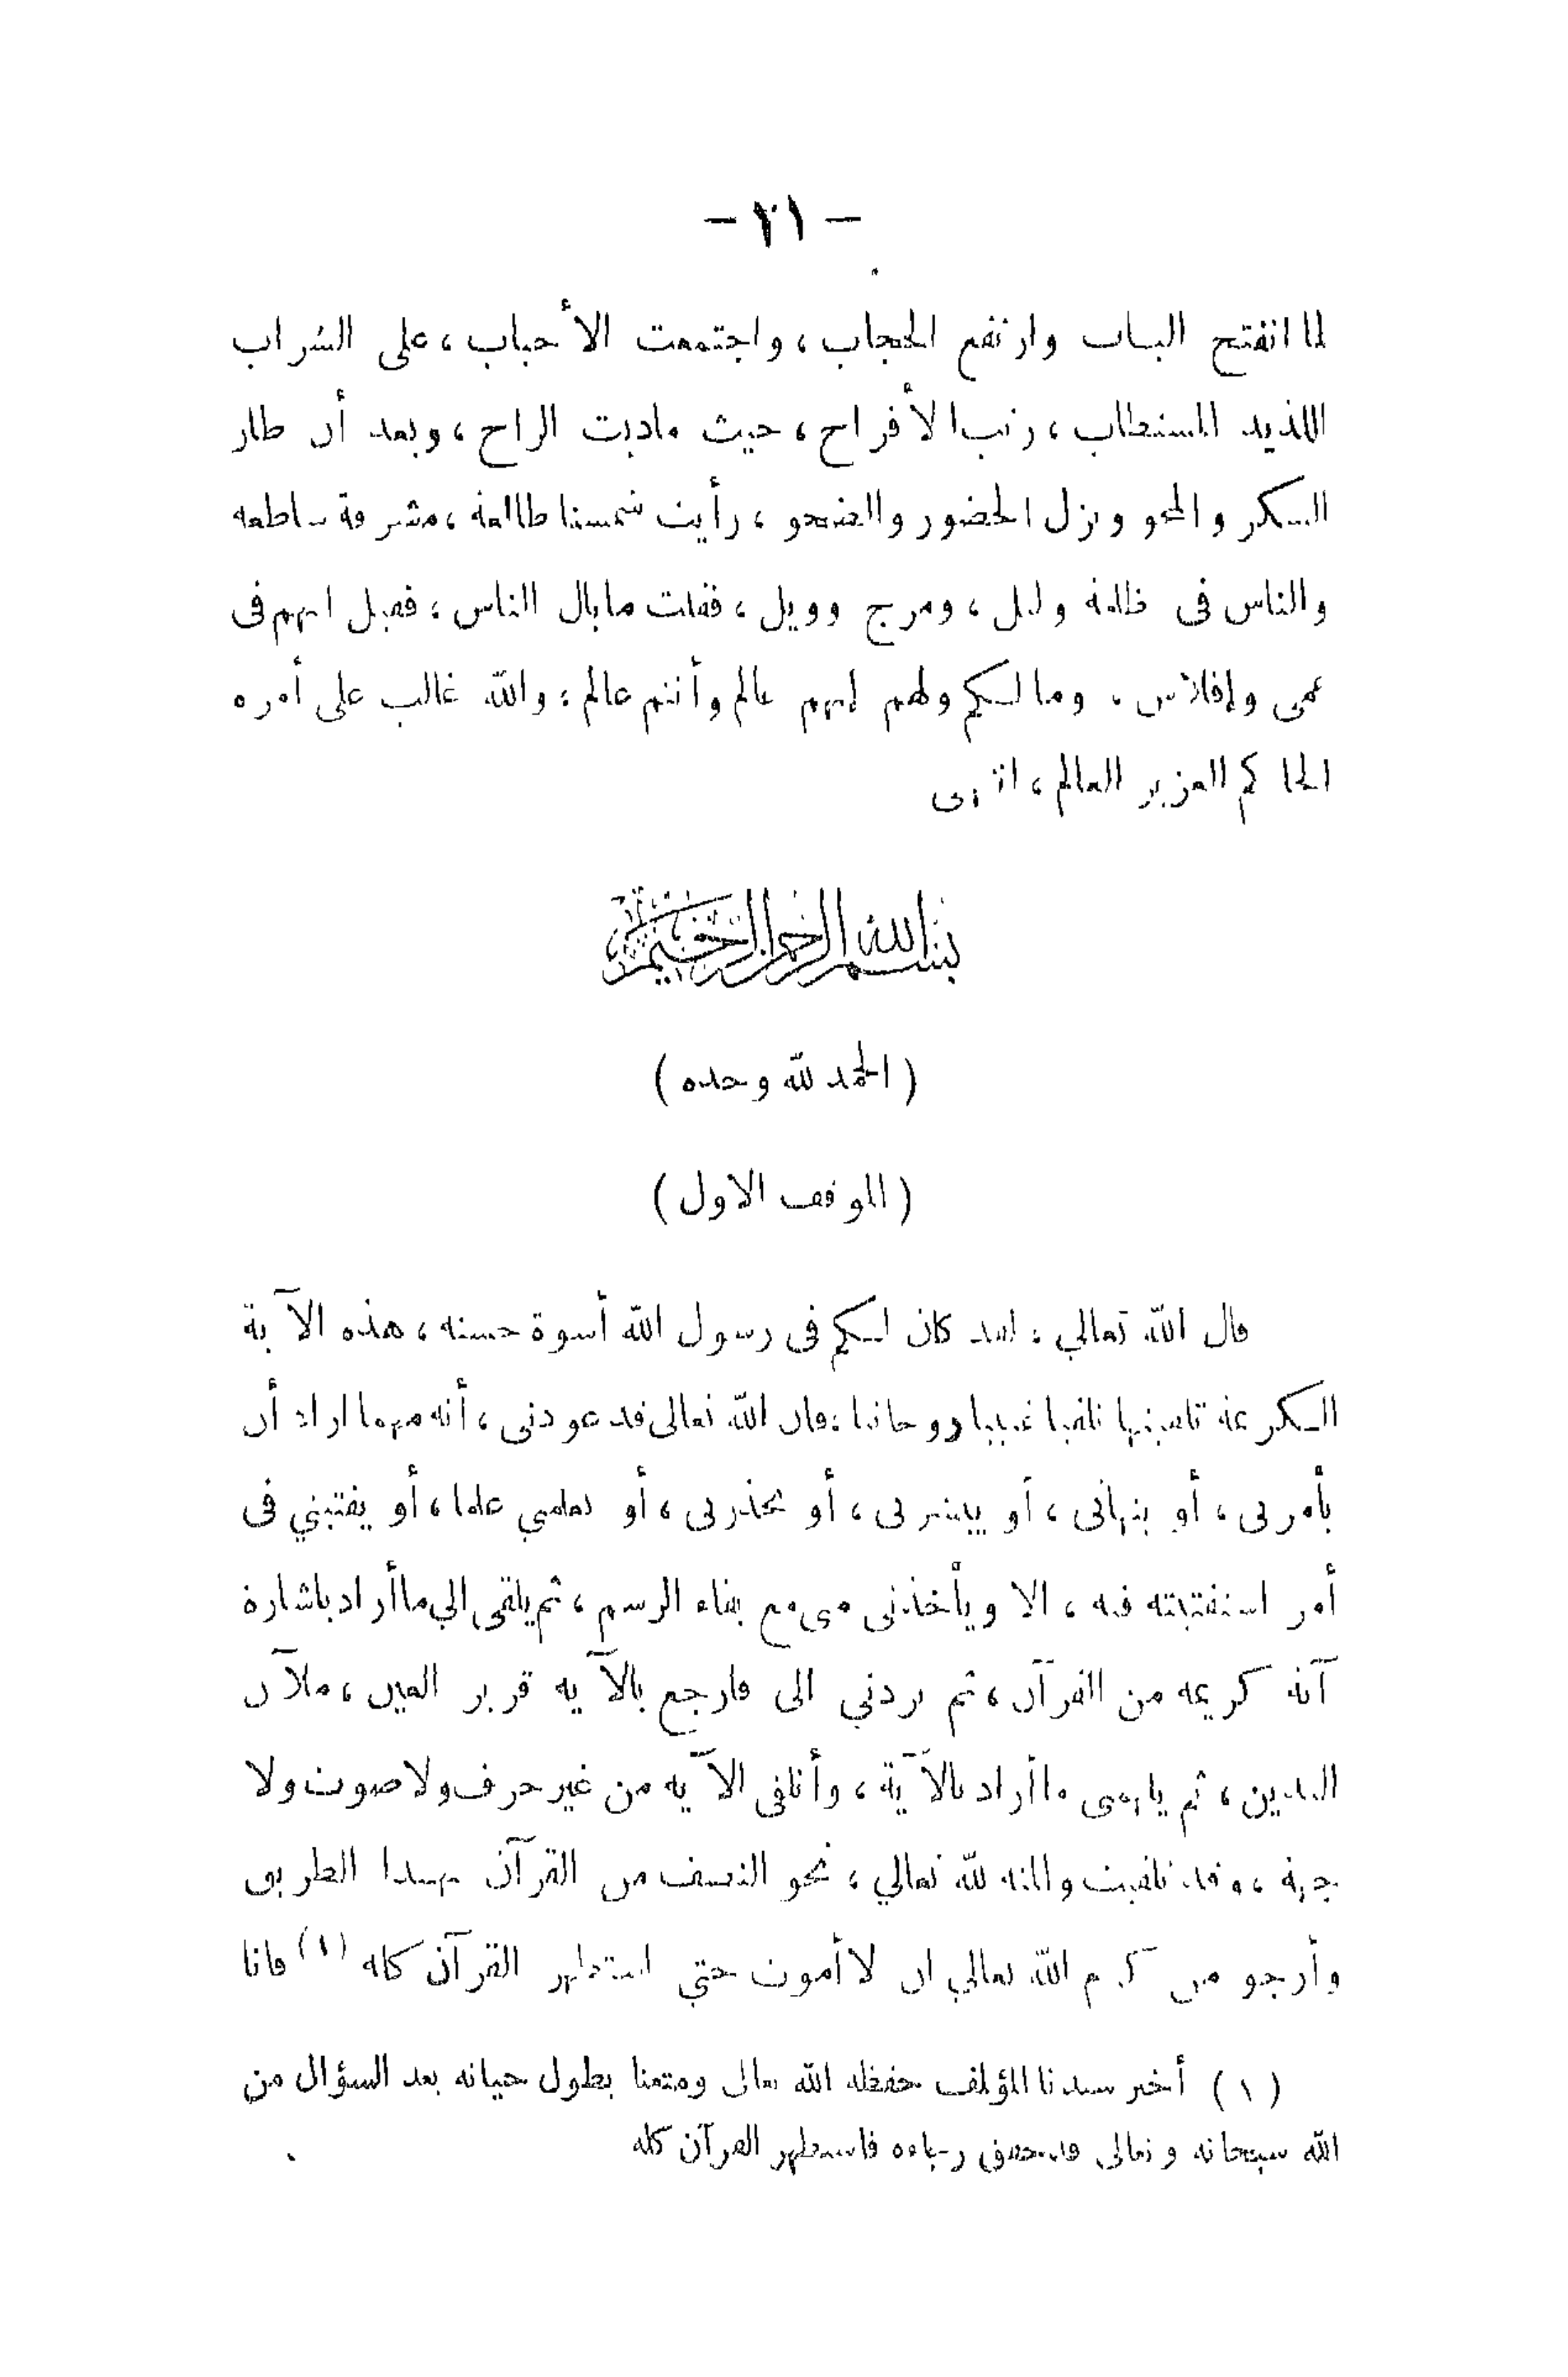 — ٢١ —
لما انفتح الباب وارتفع الحجاب ، واجتمعت الأحباب ، على الشراب
اللذيذ المستطاب ، رتب الأفراح ، حيث مادبت الراح ، وبعد أن طار
السكر والمحو ونزل الحضور والصحو ، رأيت شمسنا طالعة ، مشرقة ساطعه
والناس فى ظلمة وليل ، ومرج وويل ، فقلت مابال الناس ، فقيل انهم فى
عمى وإفلاس ، ومالكم ولهم إنهم عالم وأنتم عالم ، والله غالب على أمره
الحاكم العزيز العالم ، انتهى
بسم الله الرحمن الرحيم
( الحمد لله وحده )
( الموقف الاول )
قال الله تعالي : لقد كان لكم فى رسول الله أسوة حسنه ، هذه الآية
الكريمة تلقيتها تلقيا غيبيا روحانيا ، فان الله تعالى قد عودنى ، أنه مهما اراد أن
يأمرنى ، أو ينهانى ، أو يبشرنى ، أو يحذرنى ، أو يعلمني علما ، أو يفتيني فى
أمر استفتيته فيه ، الا ويأخذنى منى مع بقاء الرسم ، ثم يلقى الي ما أراد باشارة
آية كريمه من القرآن ، ثم يردني الى فارجع بالآيه قرير العين ، ملآن
اليدين ، ثم يلهمنى ما أراد بالآية ، وأتلقى الآيه من غير حرف ولا صوت ولا
جهة ، وقد تلقيت والمنه لله تعالي ، نحو النصف من القرآن بهذا الطريق
وأرجو من كرم الله تعالي ان لا أموت حتي استظهر القرآن كله (١) فانا
( ١ ) أخبر سيدنا المؤلف حفظه الله تعالى ومتعنا بطول حياته بعد السؤال من
الله سبحانه وتعالى قد حقق رجاءه فاستظهر القرآن كله